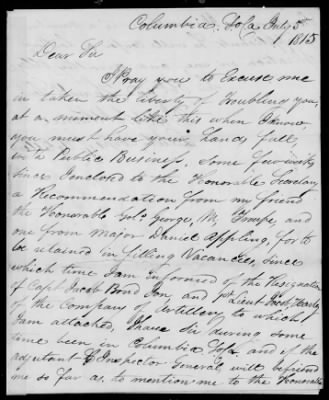 Columbia, Sofa July 5th
1815
Dear Sir
I Pray you to Excuse me
in taken the Liberty of Troubling you,
at a moment like this when I know,
you must have your hands full,
in a Public Business. Some few weeks
since I enclosed to the Honorable Secretary
a Recommendation from my friend
the Honorable Gov. George M. Troupe, and
one from Major Daniel Appling, for to
be retained in filling Vacancies, Since
which time I am Informed of the Resignation
of Capt Jacob Bond Ion, and 1st Lieut
of the Company of Artillery to which
I am attached, I have Sir during some
time been in Columbia Sofa, and if the
adjutant & Inspector General will befriend
me so far as to mention me to the Honorable